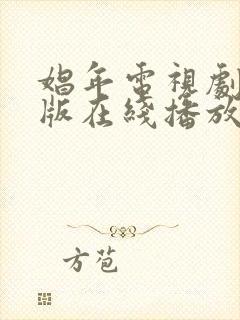 娼年電視劇
版在綫播放
方苞